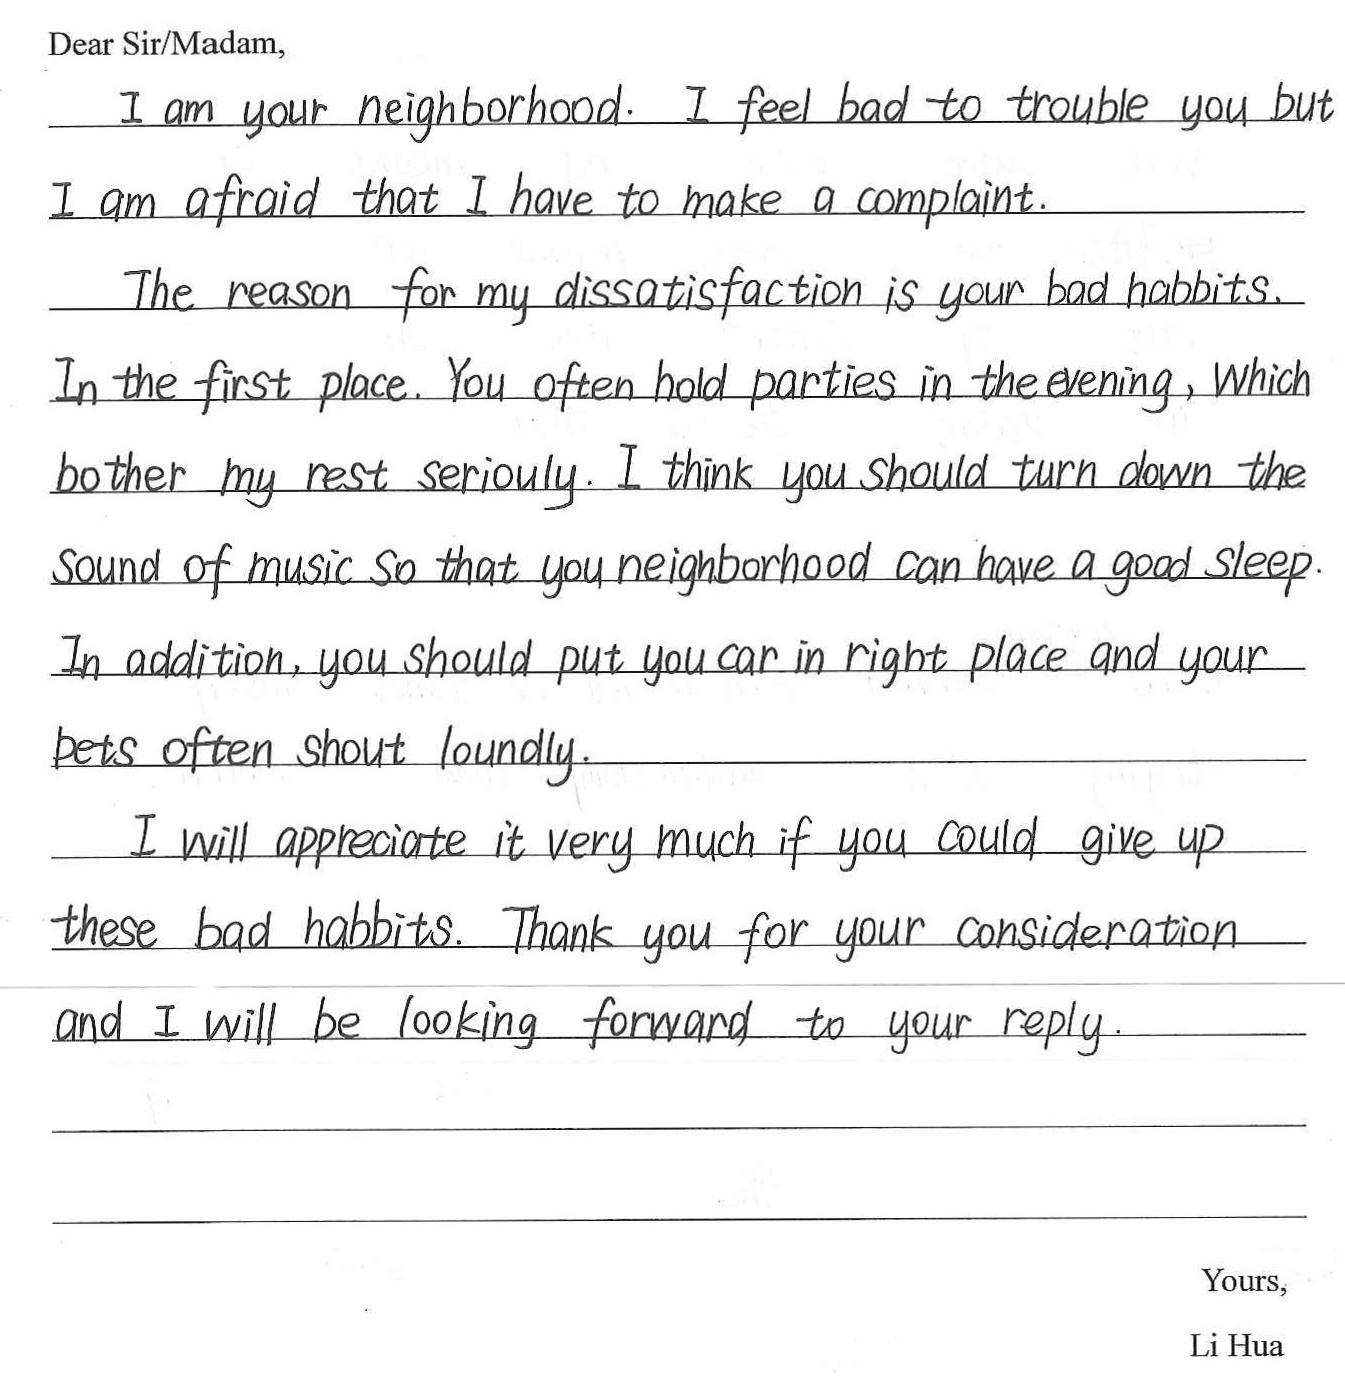 Dear Sir/Madam,
I am your neighborhood. I feel bad to trouble you but
I am afraid that I have to make a complaint.
The reason for my dissatisfaction is your bad habbits.
In the first place. You often hold parties in the evening, Which
bother my rest seriouly. I think you should turn down the
Sound of music So that you neighborhood can have a good Sleep.
In addition, you should put you car in right place and your
pets often shout loundly.
I will appreciate it very much if you could give up
these bad habbits. Thank you for your consideration
and I will be looking forward to your reply.
Yours,
Li Hua